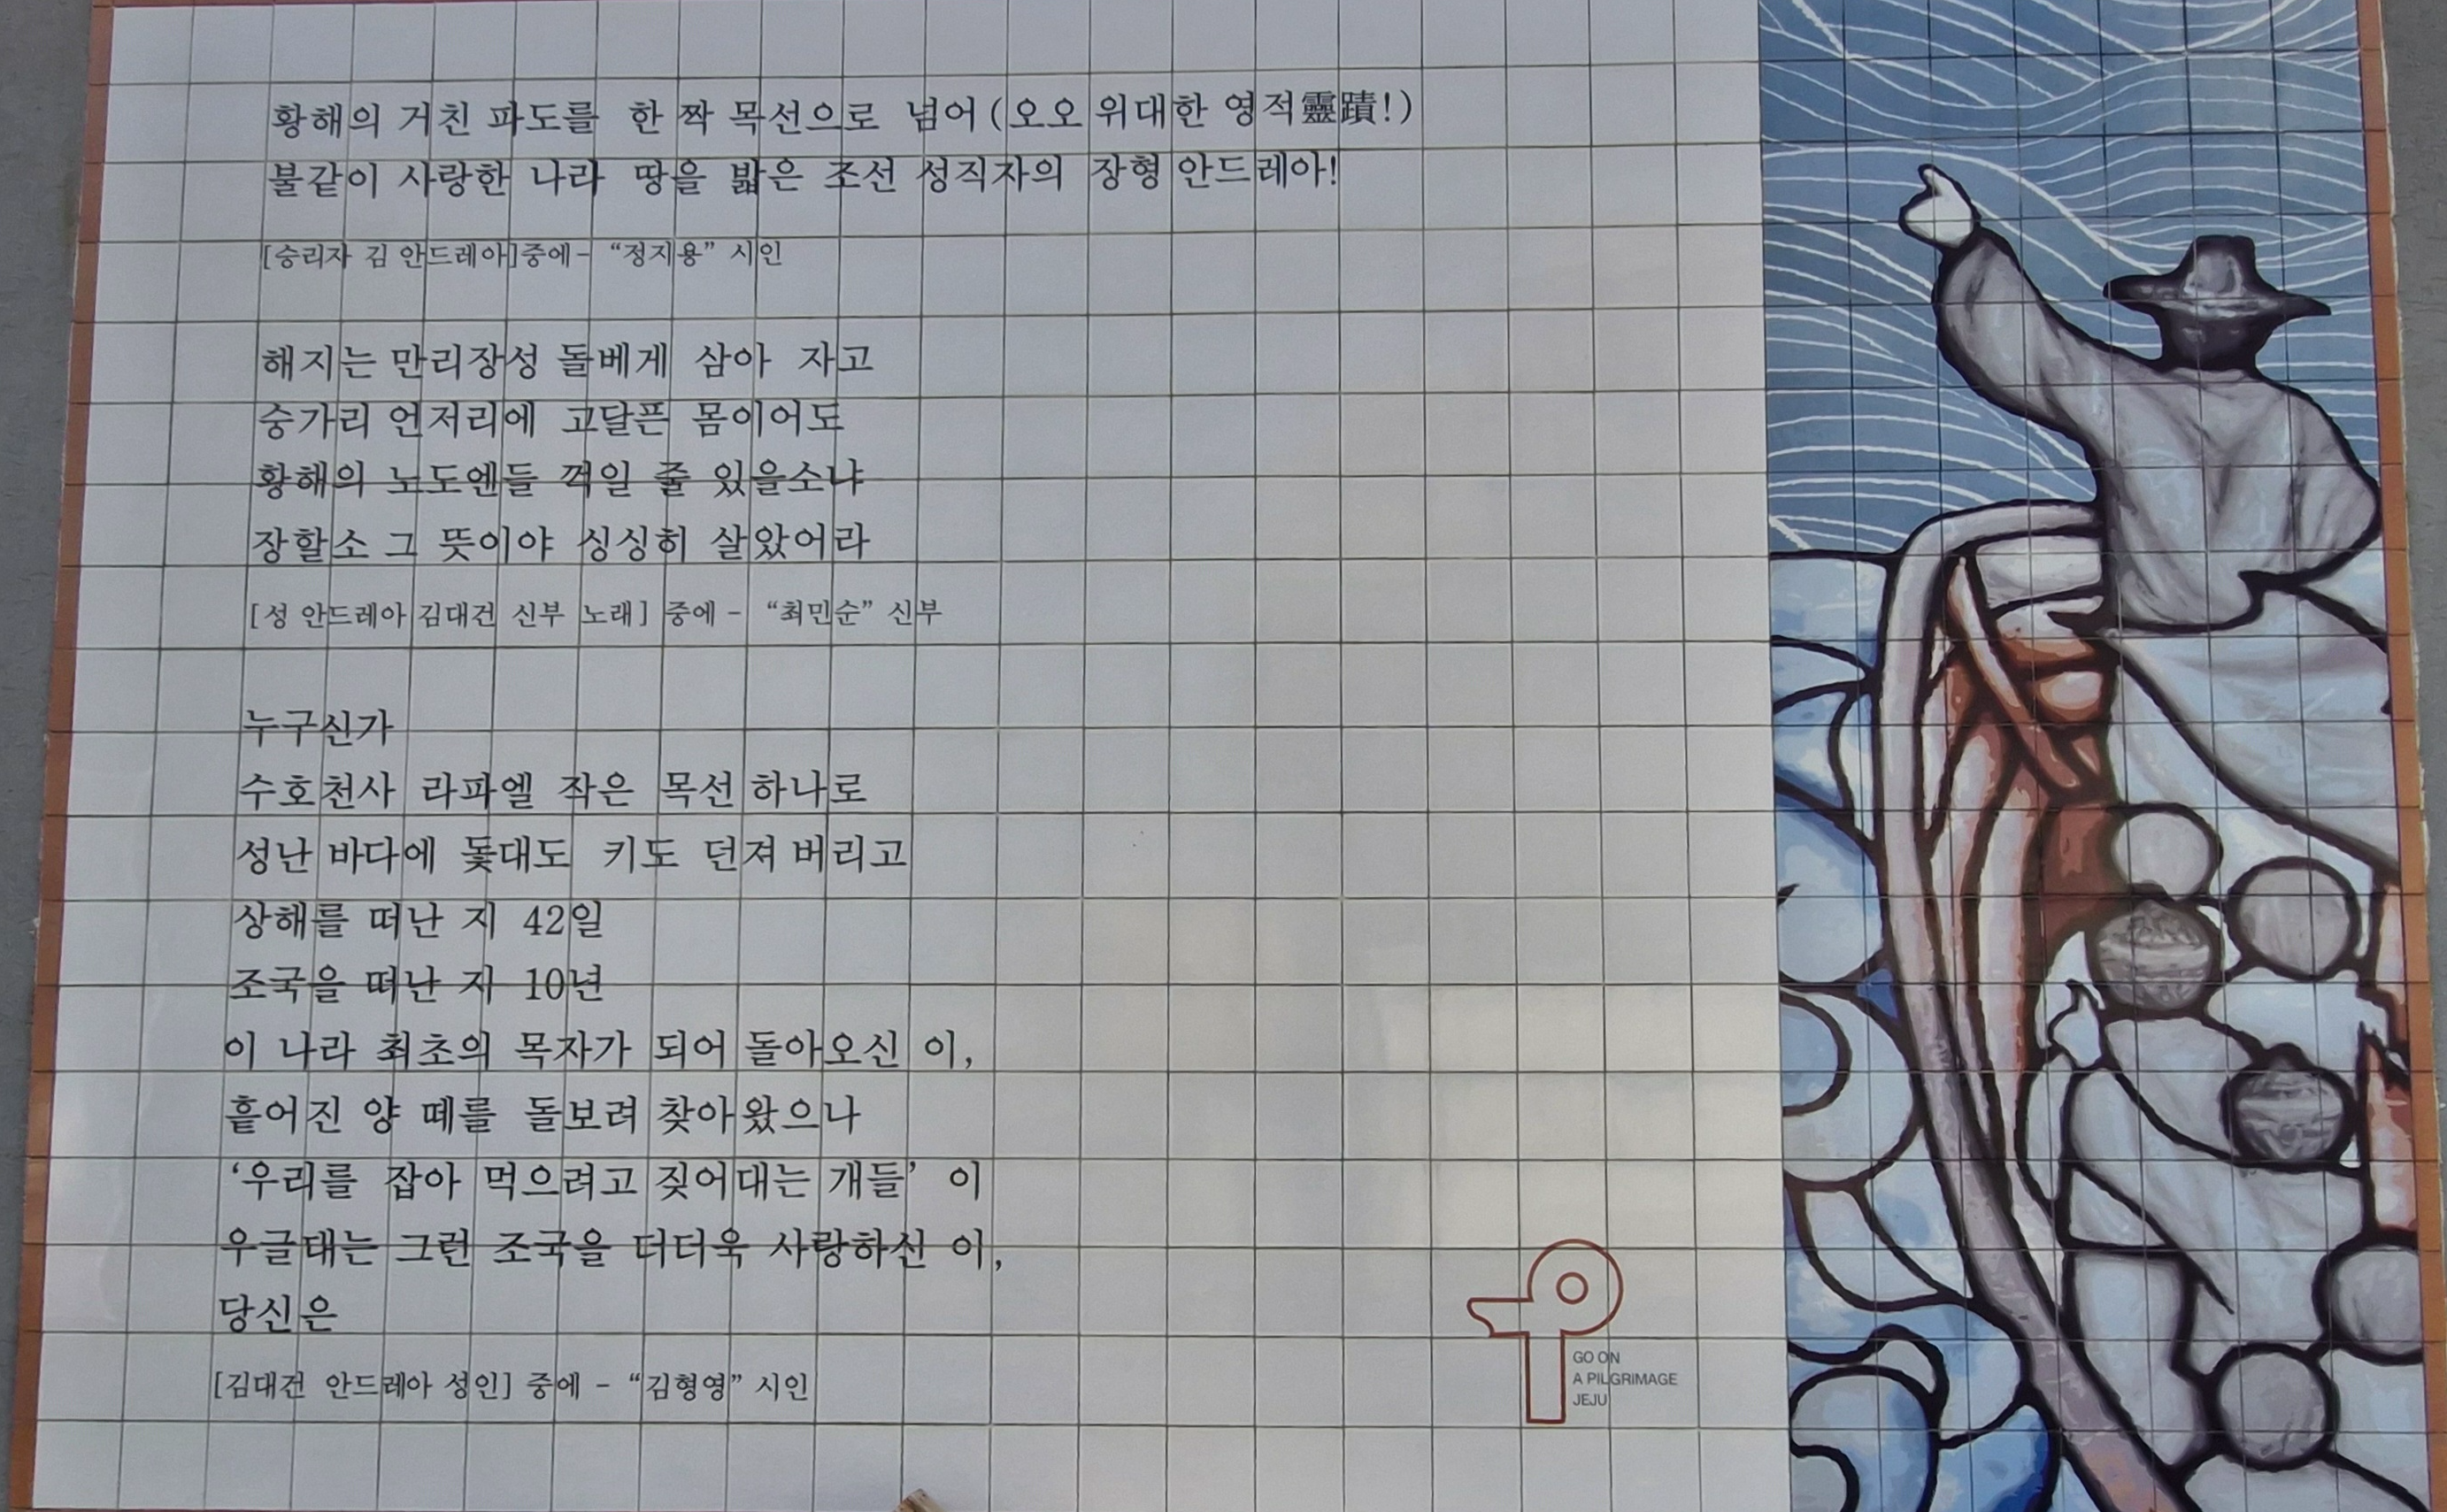 황해의 거친 파도를 한 짝 목선으로 넘어 (오오 위대한 영적靈蹟!)
불같이 사랑한 나라 땅을 밟은 조선 성직자의 장형 안드레아!
[승리자 김 안드레아]중에- “정지용” 시인
해지는 만리장성 돌베게 삼아 자고
숭가리 언저리에 고달픈 몸이어도
황해의 노도엔들 꺽일 줄 있을소냐
장할소 그 뜻이야 싱싱히 살았어라
[성 안드레아 김대건 신부 노래] 중에 - “최민순” 신부
누구신가
수호천사 라파엘 작은 목선 하나로
성난 바다에 돛대도 키도 던져 버리고
상해를 떠난 지 42일
조국을 떠난 지 10년
이 나라 최초의 목자가 되어 돌아오신 이,
흩어진 양 떼를 돌보려 찾아왔으나
‘우리를 잡아 먹으려고 짖어대는 개들’ 이
우글대는 그런 조국을 더더욱 사랑하신 이,
당신은
[김대건 안드레아 성인] 중에 - “김형영” 시인
GO ON
A PILGRIMAGE
JEJU